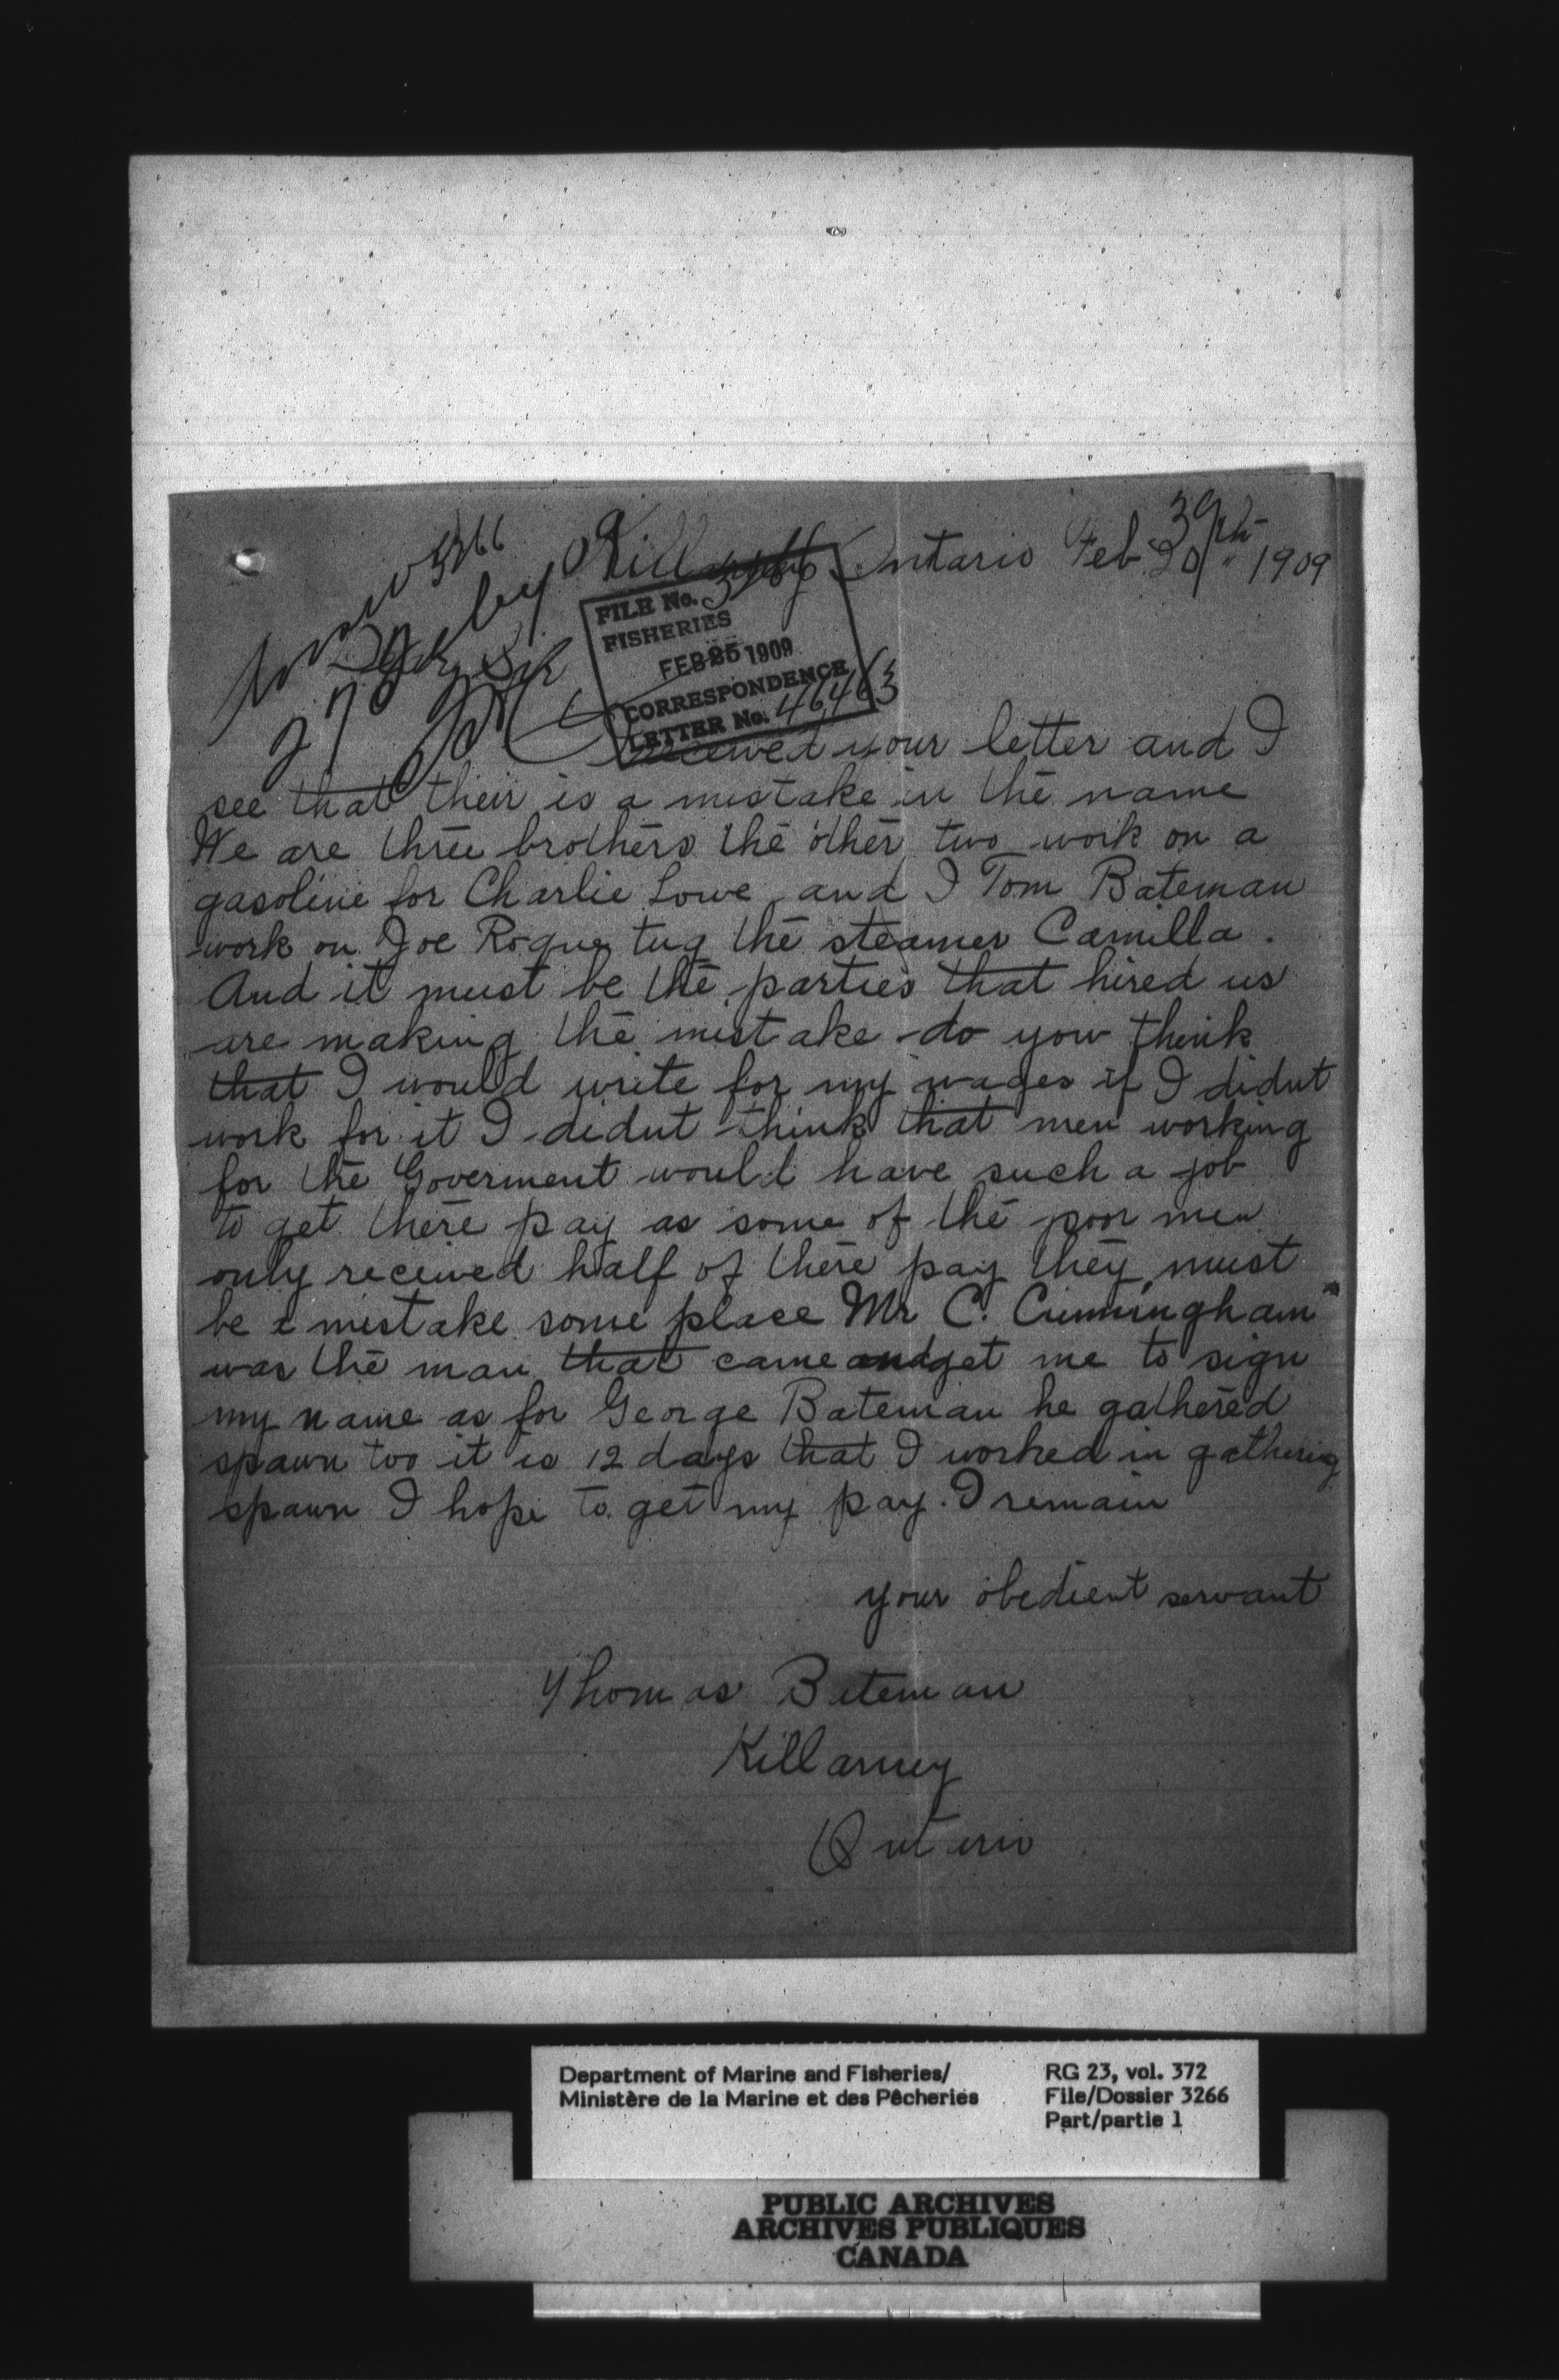 3266
Killarney Ontario Feb 20th 1909
39
FILE No. 3266
FISHERIES
FEB 25 1909
CORRESPONDENCE
LETTER No. 46463
I received your letter and I
see that their is a mistake in the name
We are three brothers the other two work on a
gasoline for Charlie Lowe and I Tom Bateman
work on Joe Roque tug the steamer Camilla.
And it must be the parties that hired us
are making the mistake do you think
that I would write for my wages if I didnt
work for it I didnt think that men working
for the Goverment would have such a job
to get there pay as some of the poor men
only received half of there pay they must
be a mistake some place Mr C. Cunningham
was the man that came and get me to sign
my name as for George Bateman he gathered
spawn too it is 12 days that I worked in gathering
spawn I hope to get my pay. I remain
your obedient servant
Thomas Bateman
Killarney
Ontario
Department of Marine and Fisheries/ RG 23, vol. 372
Ministère de la Marine et des Pêcheries File/Dossier 3266
Part/partie 1
PUBLIC ARCHIVES
ARCHIVES PUBLIQUES
CANADA